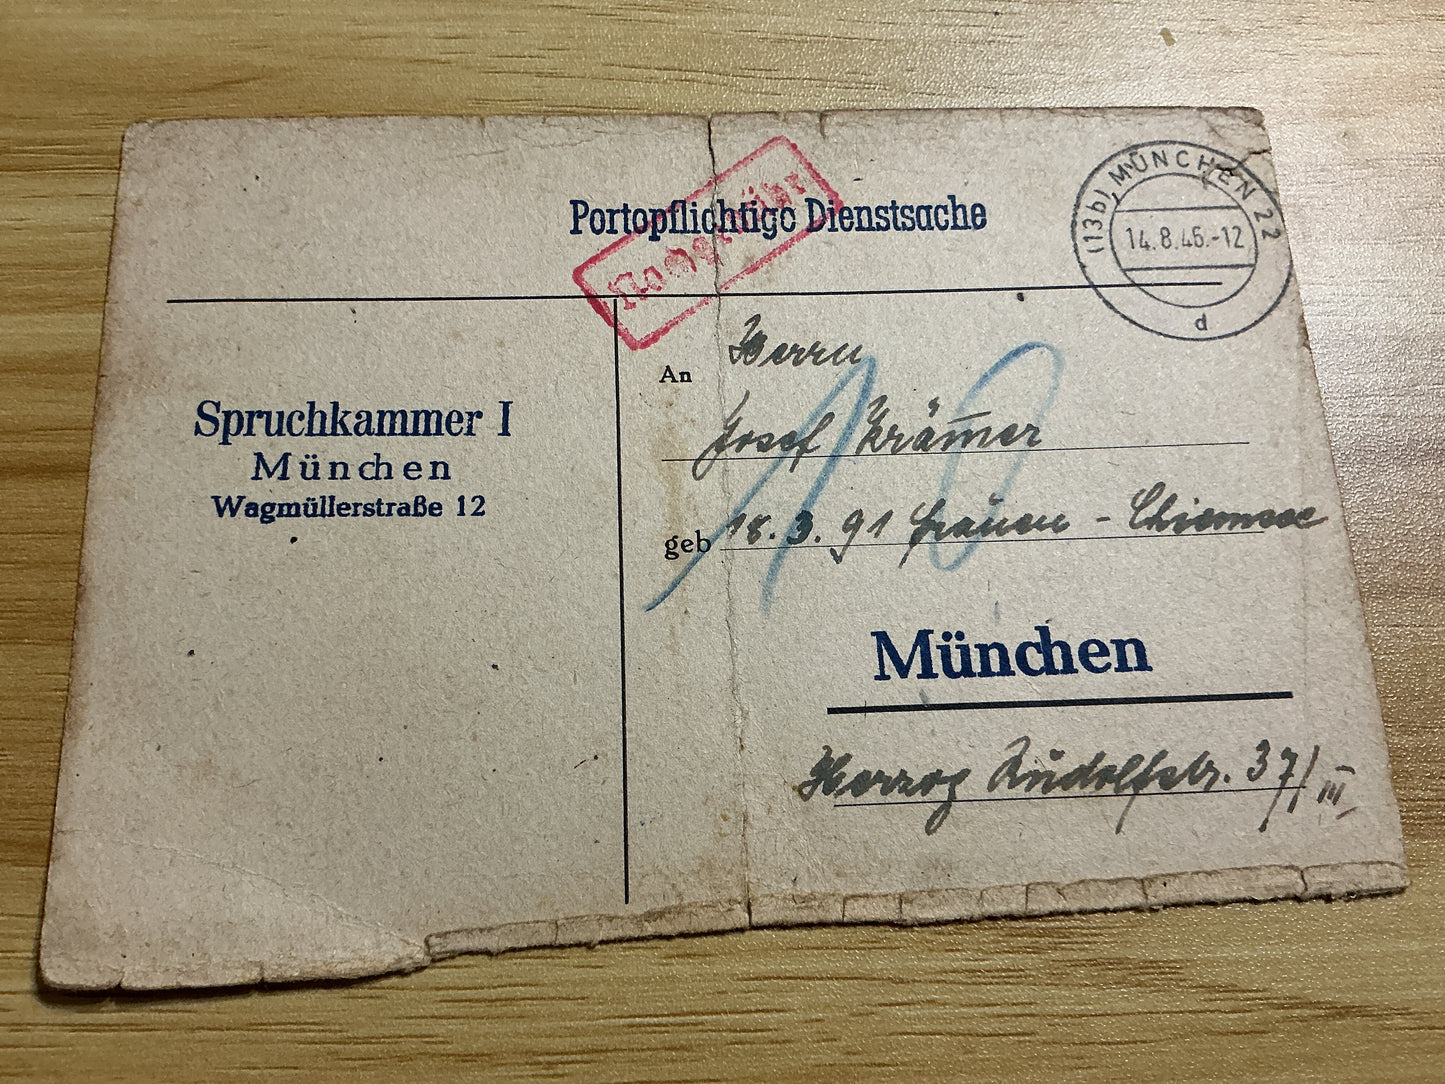 Portopflichtige Dienstsache
Nachgebühr
(13b) MÜNCHEN 22
14.8.46.-12
d
Spruchkammer I
München
Wagmüllerstraße 12
An Herrn
Josef Krämer
geb 18.3.91 Frauen - Chiemsee
10
München
Herzog Rudolfstr. 37/III